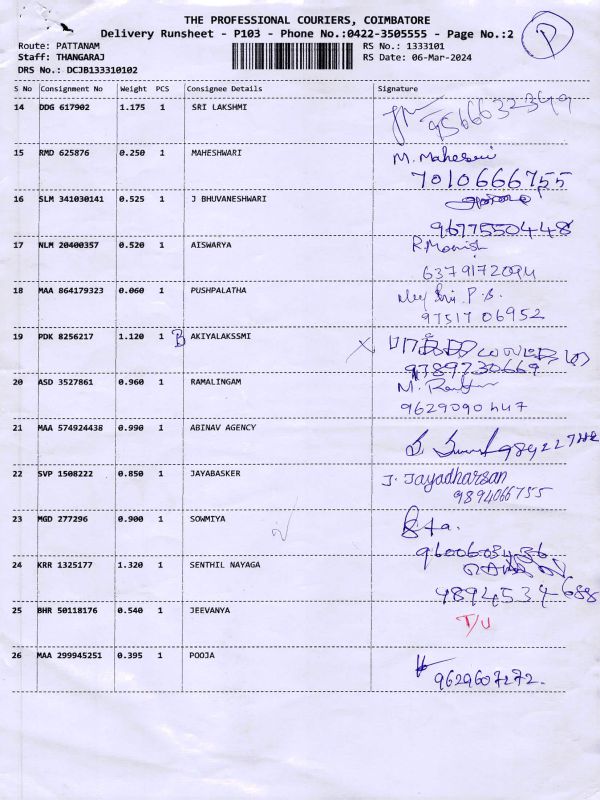 THE PROFESSIONAL COURIERS, COIMBATORE
Delivery Runsheet - P103 - Phone No.:0422-3505555 - Page No.:2
P
Route: PATTANAM
RS No.: 1333101
Staff: THANGARAJ
RS Date: 06-Mar-2024
DRS No.: DCJB133310102
S No Consignment No Weight PCS Consignee Details Signature
14 DDG 617902 1.175 1 SRI LAKSHMI
9566632349
15 RMD 625876 0.250 1 MAHESHWARI M. Maheswi
7010666755
16 SLM 341030141 0.525 1 J BHUVANESHWARI
9677550448
17 NLM 20400357 0.520 1 AISWARYA R. Monish
6379172094
18 MAA 864179323 0.060 1 PUSHPALATHA
9751706952
19 PDK 8256217 1.120 1 B AKIYALAKSSMI X
9789730669
20 ASD 3527861 0.960 1 RAMALINGAM
9629090447
21 MAA 574924438 0.990 1 ABINAV AGENCY
22 SVP 1508222 0.850 1 JAYABASKER J. Jayadharsan
9894066755
23 MGD 277296 0.900 1 SOWMIYA
24 KRR 1325177 1.320 1 SENTHIL NAYAGA
25 BHR 50118176 0.540 1 JEEVANYA T/U
26 MAA 299945251 0.395 1 POOJA
9629607272.